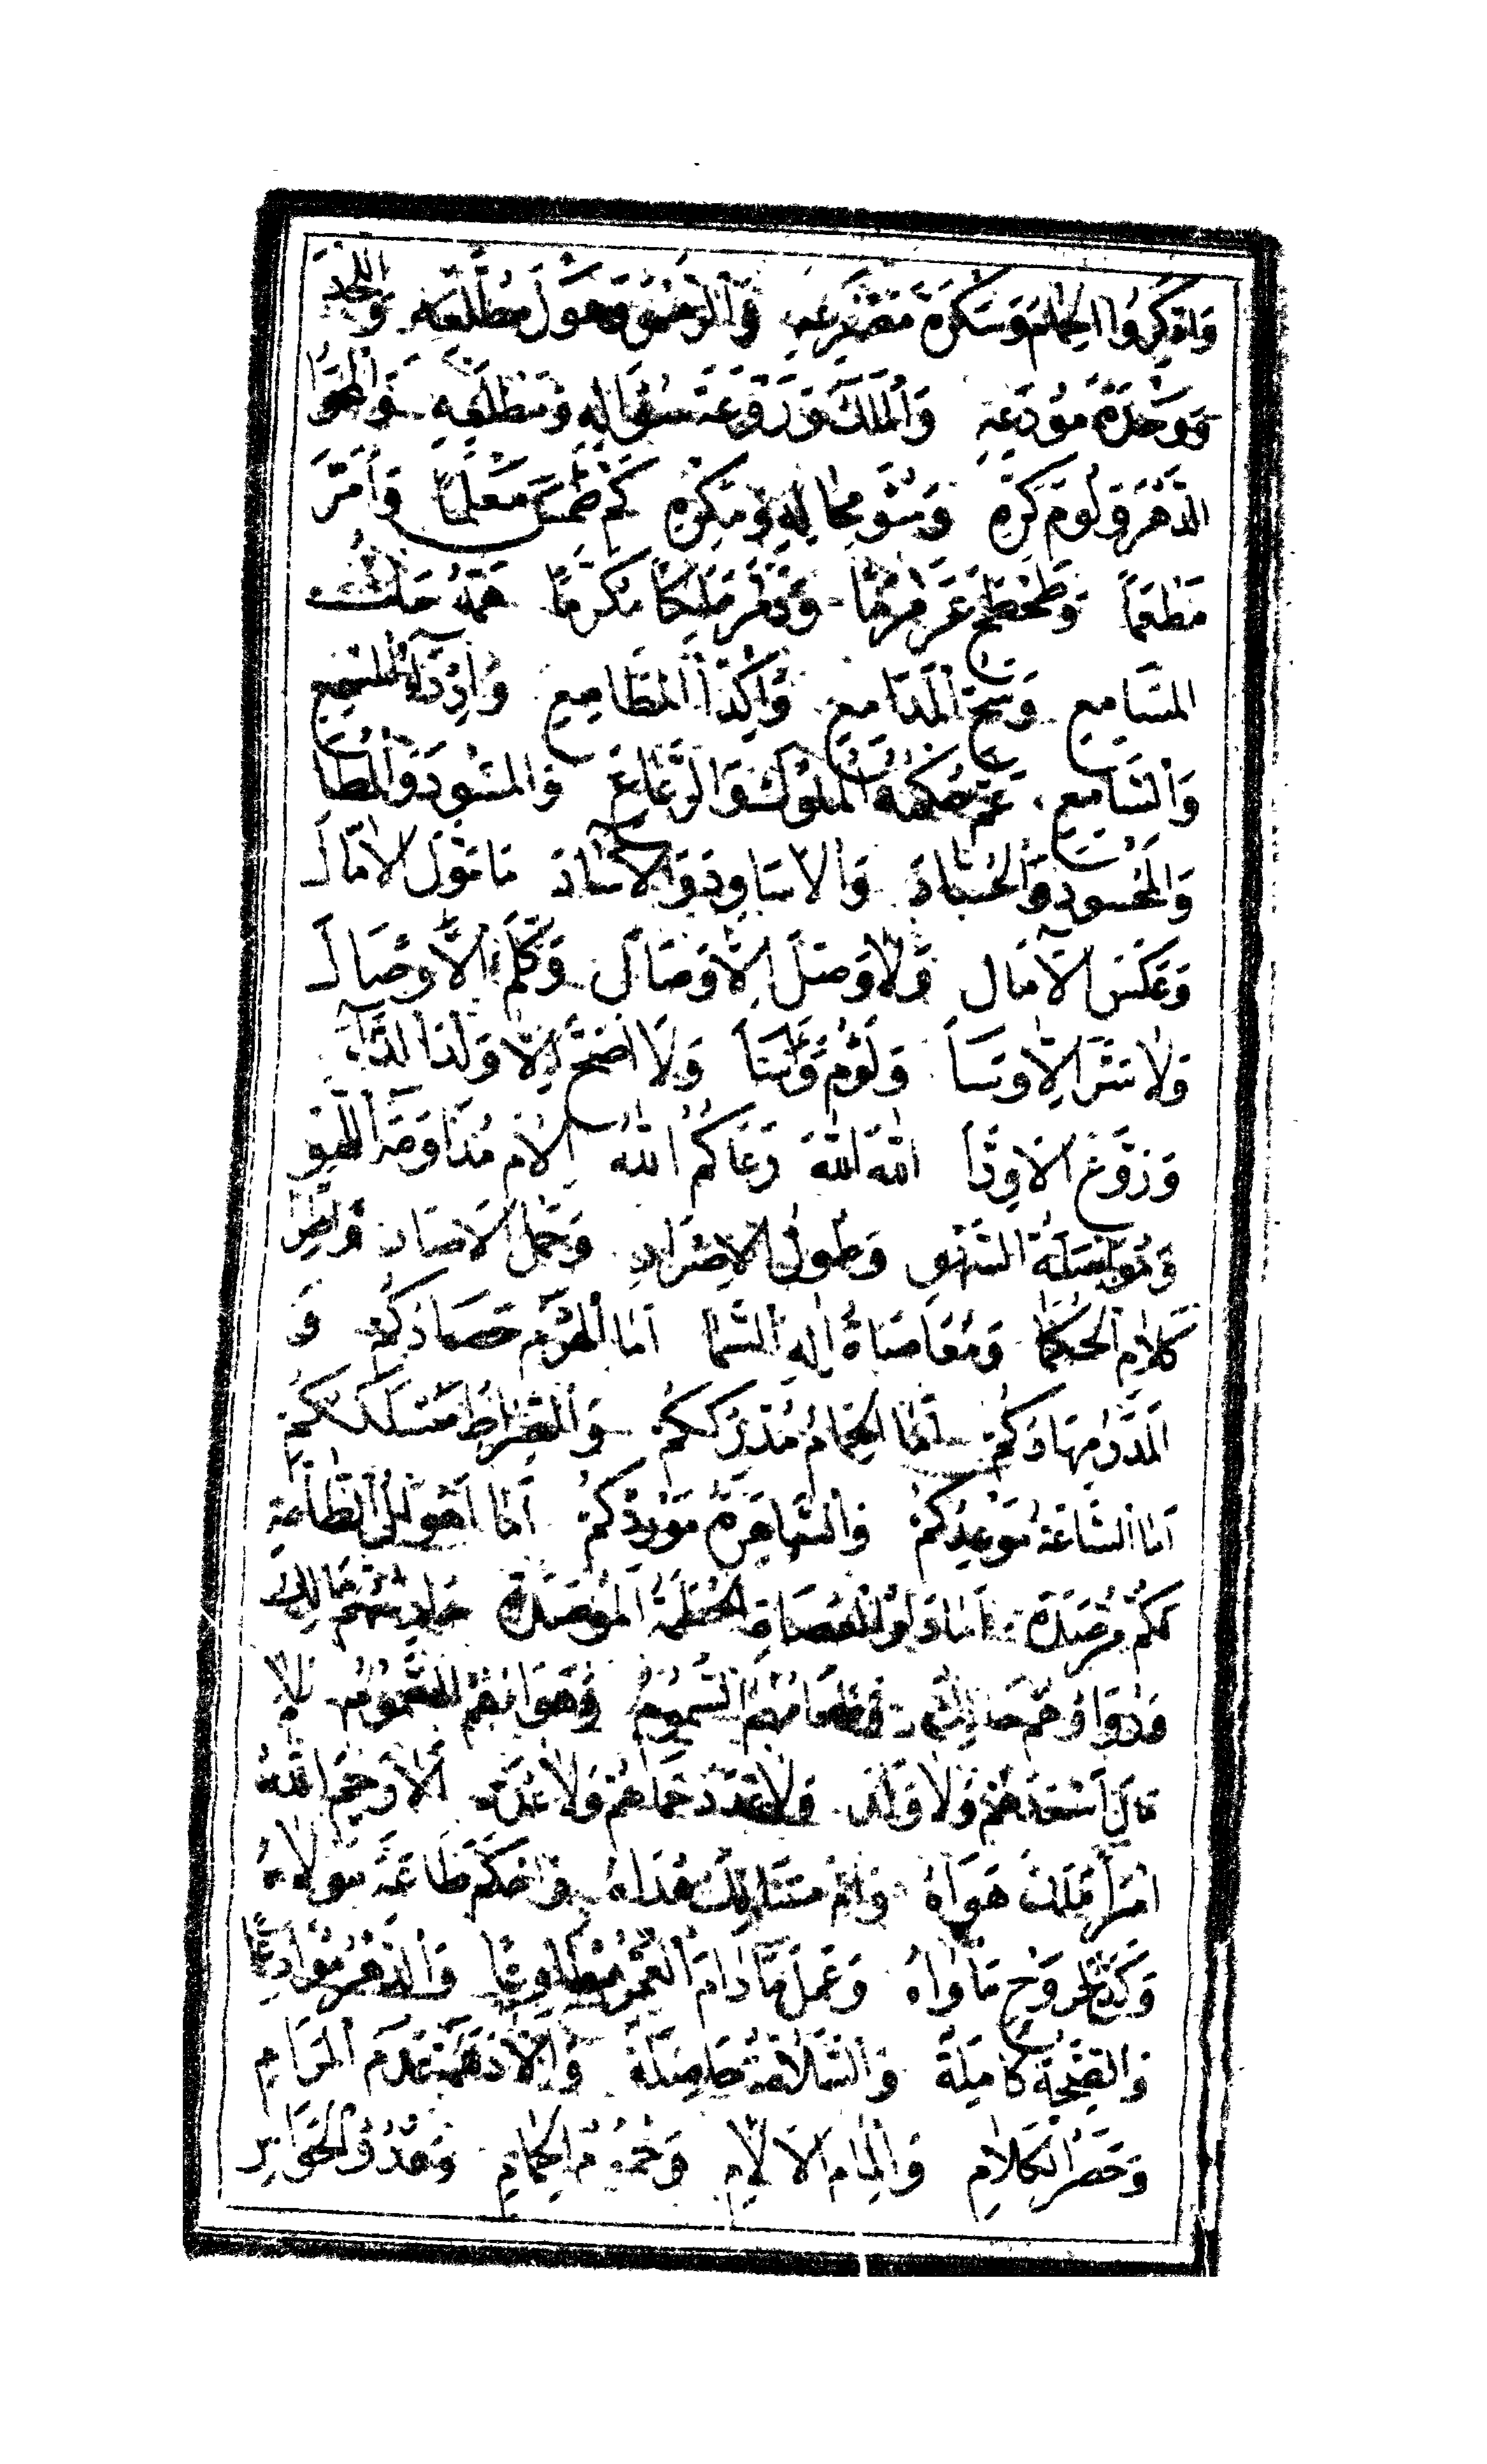 وَادَّكِرُوا الْحِمَامَ وَسَكْرَةَ مَصْرَعِهِ وَالرَّمْسَ وَهَوْلَ مُطَّلَعِهِ وَاللَّحْدَ
وَوَحْدَةَ مُودَعِهِ وَالْمَلَكَ وَرَوْعَةَ سُؤَالِهِ وَمَطْلَعِهِ وَالْمَحُوا
الدَّهْرَ وَلُؤْمَ كَرِّهِ وَسُوءَ مِحَالِهِ وَمَكْرِهِ كَمْ طَمَسَ مَعْلَمًا وَأَمَرَّ
مَطْعَمًا وَطَحْطَحَ عَرَمْرَمًا وَدَمَّرَ مَلِكًا مُكَرَّمًا هَمُّهُ سَكُّ
الْمَسَامِعِ وَسَحُّ الْمَدَامِعِ وَإِكْدَاءُ الْمَطَامِعِ وَإِرْدَاءُ الْمُسْمِعِ
وَالسَّامِعِ عَمَّ حُكْمُهُ الْمُلُوكَ وَالرَّعَاعَ وَالْمَسُودَ وَالْمُطَاعَ
وَالْمَحْسُودَ وَالْحُسَّادَ وَالْأَسَاوِدَ وَالْآسَادَ مَا مَوَّلَ إِلَّا مَالَ
وَعَكَسَ الْآمَالَ وَلَا وَصَلَ إِلَّا وَصَالَ وَكَلَمَ الْأَوْصَالَ
وَلَا سَرَّ إِلَّا وَسَا وَلَؤُمَ وَأَسَا وَلَا أَصَحَّ إِلَّا وَلَّدَ الدَّاءَ
وَرَوَّعَ الْأَوِدَّا اللهَ اللهَ رَعَاكُمُ اللهُ إِلَامَ مُدَاوَمَةُ اللَّهْوِ
وَمُوَاصَلَةُ السَّهْوِ وَطُولُ الْإِصْرَارِ وَحَمْلُ الْآصَارِ وَاطِّرَاحُ
كَلَامِ الْحُكَمَا وَمُعَاصَاةُ إِلَهِ السَّمَا أَمَا الْهَرَمُ حَصَادُكُمْ وَ
الْمَدَرُ مِهَادُكُمْ أَمَا الْحِمَامُ مُدْرِكُكُمْ وَالصِّرَاطُ مَسْلَكُكُمْ
أَمَا السَّاعَةُ مَوْعِدُكُمْ وَالسَّاهِرَةُ مَوْرِدُكُمْ أَمَا أَهْوَالُ الطَّامَّةِ
لَكُمْ مُرْصَدَةٌ أَمَا دَارُ الْعُصَاةِ الْحُطَمَةُ الْمُؤْصَدَةُ حَارِسُهُمْ مَالِكٌ
وَرُوَاؤُهُمْ حَالِكٌ وَطَعَامُهُمُ السُّمُومُ وَهَوَاؤُهُمُ السَّمُومُ لَا
مَالَ أَسْعَدَهُمْ وَلَا وَلَدَ وَلَا عَدَدَ حَمَاهُمْ وَلَا عُدَدَ أَلَا رَحِمَ اللهُ
امْرَأً مَلَكَ هَوَاهُ وَأَمَّ مَسَالِكَ هُدَاهُ وَأَحْكَمَ طَاعَةَ مَوْلَاهُ
وَكَدَحَ لِرَوْحِ مَأْوَاهُ وَعَمِلَ مَا دَامَ الْعُمُرُ مُطَاوِعًا وَالدَّهْرُ مُوَادِعًا
وَالصِّحَّةُ كَامِلَةً وَالسَّلَامَةُ حَاصِلَةً وَإِلَّا دَهِمَهُ عَدَمُ الْمَرَامِ
وَحَصَرُ الْكَلَامِ وَإِلْمَامُ الْآلَامِ وَحُمُومُ الْحِمَامِ وَهُدُوُّ الْحَوَاسِّ